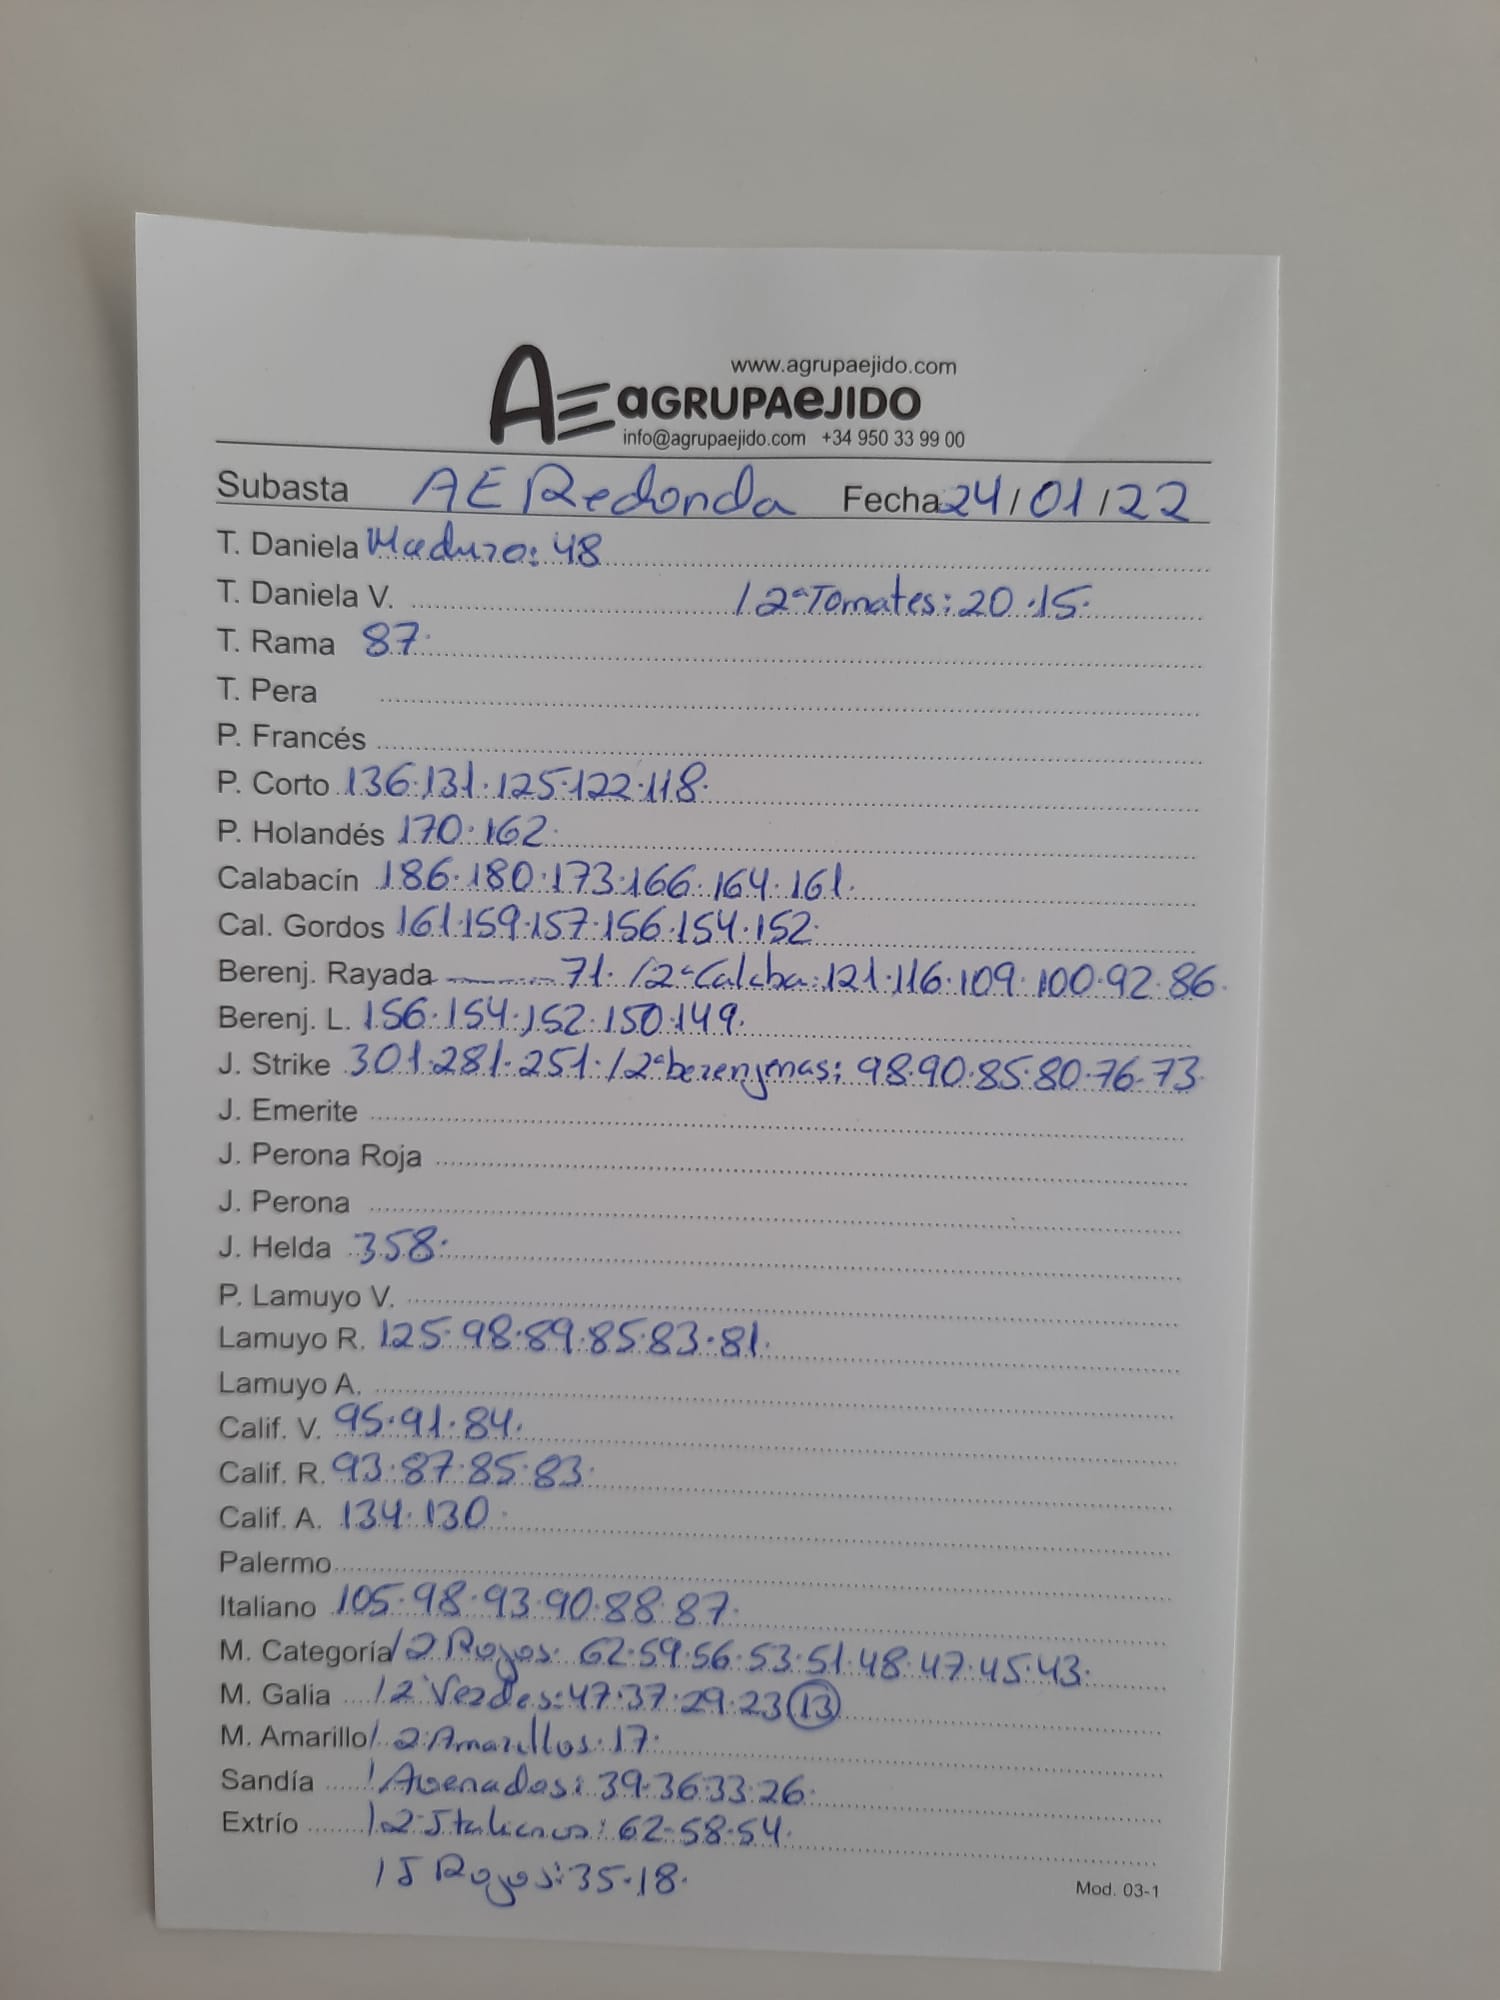 www.agrupaejido.com
AE aGRUPAeJIDO
info@agrupaejido.com +34 950 33 99 00
Subasta AE Redonda Fecha 24/01/22
T. Daniela Maduro: 48
T. Daniela V. /2ª Tomates: 20.15.
T. Rama 87.
T. Pera
P. Francés
P. Corto 136.131.125.122.118.
P. Holandés 170.162.
Calabacín 186.180.173.166.164.161.
Cal. Gordos 161.159.157.156.154.152.
Berenj. Rayada 71. /2ª Calaba: 121.116.109.100.92.86.
Berenj. L. 156.154.152.150.149.
J. Strike 301.281.251. /2ª berenjenas: 98.90.85.80.76.73.
J. Emerite
J. Perona Roja
J. Perona
J. Helda 358.
P. Lamuyo V.
Lamuyo R. 125.98.89.85.83.81.
Lamuyo A.
Calif. V. 95.91.84.
Calif. R. 93.87.85.83.
Calif. A. 134.130.
Palermo
Italiano 105.98.93.90.88.87.
M. Categoría /2 Rojos: 62.59.56.53.51.48.47.45.43.
M. Galia /2 Verdes: 47.37.29.23 (13)
M. Amarillo /2 Amarillos: 17.
Sandía /Asenados: 39.36.33.26.
Extrío /2 Italianos: 62.58.54.
/J Rojos: 35.18.
Mod. 03-1